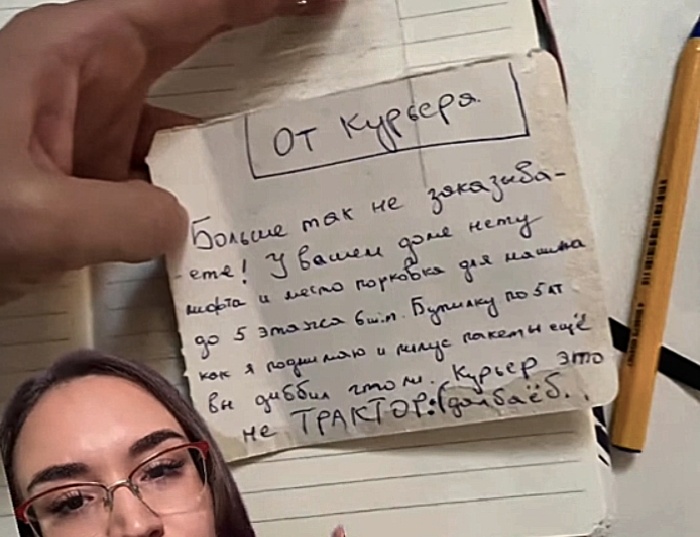 От Курьера
Больше так не заказыва-
ете! У вашем доме нету
лифта и место порковка для машина
до 5 этажа 6шт. Бутилку по 5лт
как я поднимаю и плус пакеты ещё
вы диббил что ли. Курьер это
не ТРАКТОР:(долбаёб.